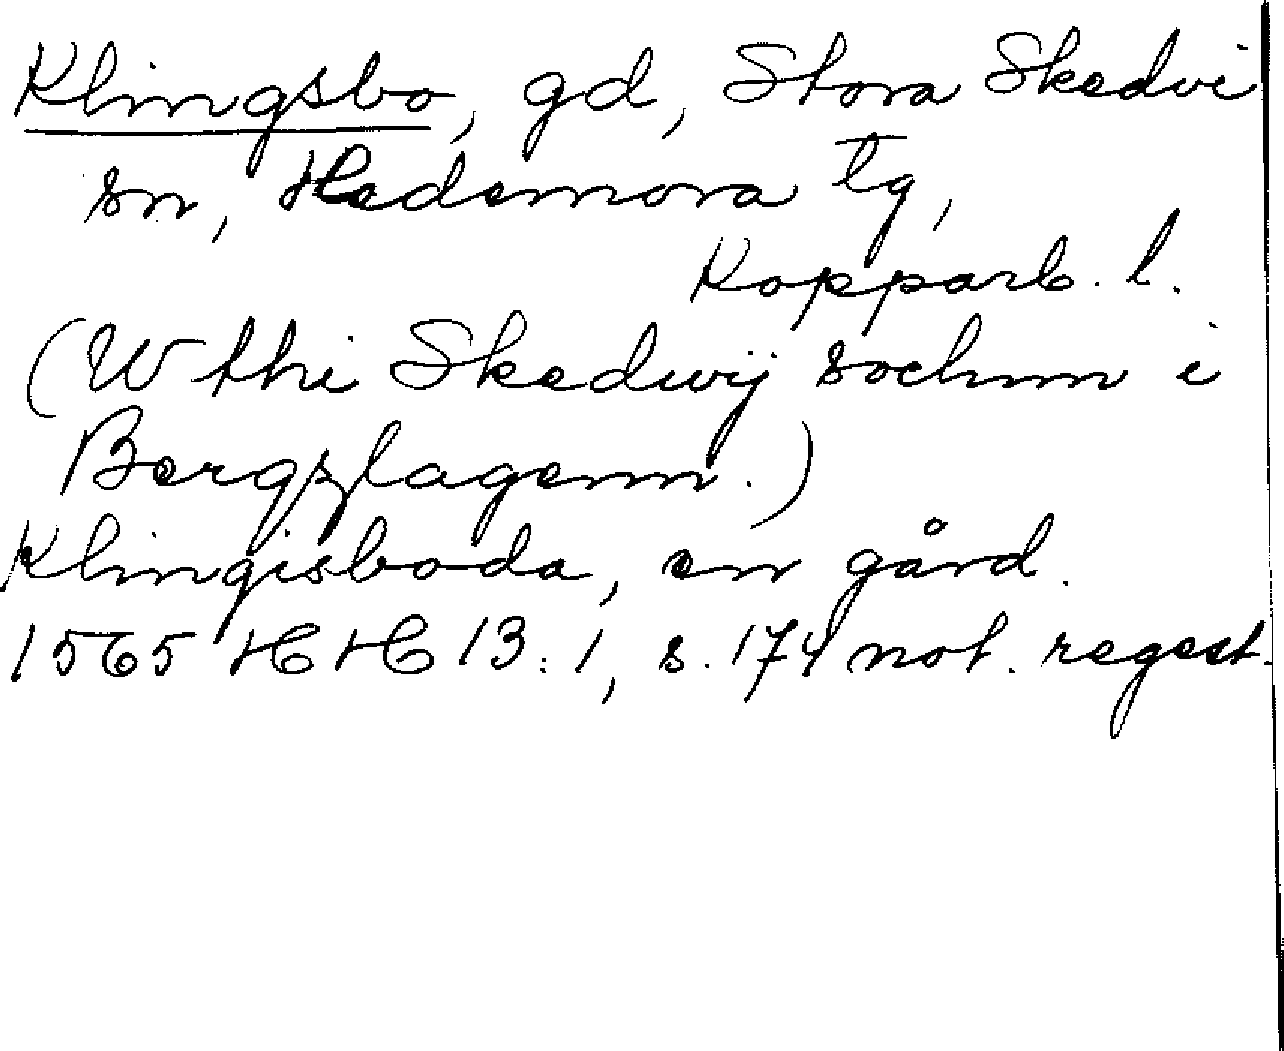 Klingsbo, gd, Stora Skedvi
sn, Hedemora tg,
Kopparb. l.
(W thi Skedwij sochnn i
Bergzlagenn.)
Klingisboda, en gård.
1565 HH 13:1, s. 174 not. regest.